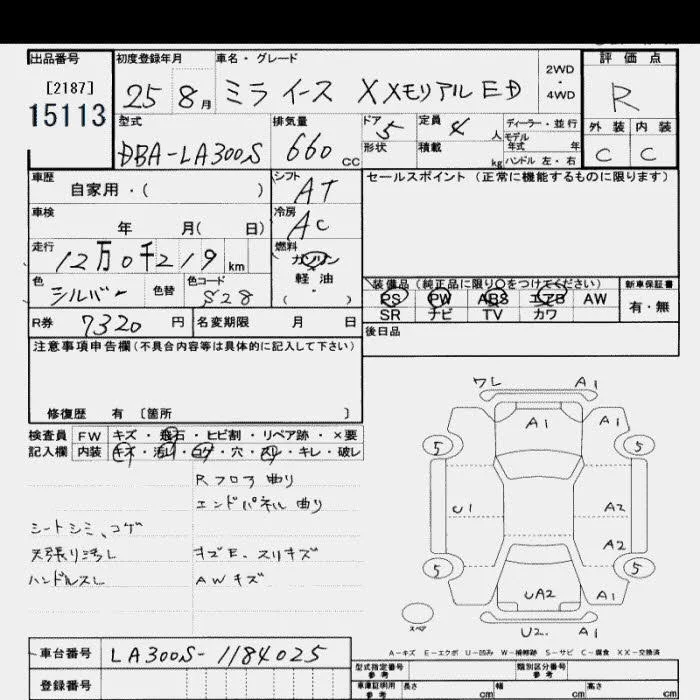 出品番号
[2187]
15113
初度登録年月
25 8月
車名・グレード
ミライース XXメモリアルED
2WD
・
4WD
評価点
R
外装 内装
C C
型式
DBA-LA300S
排気量
660 cc
ドア 5
定員 4 人
形状
積載 kg
ディーラー・並行
モデル
年式 年
ハンドル 左・右
車歴
自家用・( )
シフト
AT
セールスポイント (正常に機能するものに限ります)
車検
年 月( 日)
冷房
AC
走行
12万0千219km
燃料
ガソリン
軽油
( ・ )
色
シルバー
色替
色コード
S28
装備品(純正品に限り○をつけてください)
PS PW ABS エアB AW
SR ナビ TV カワ
新車保証書
有・無
R券 7320円
名変期限 月 日
後日品
注意事項申告欄(不具合内容等は具体的に記入して下さい)
修復歴 有 〔箇所 〕
検査員
記入欄
FW キズ・飛石・ヒビ割・リペア跡・×要
内装 キズ・汚れ・コゲ・穴・スレ・キレ・破レ
Rフロア曲り
エンドパネル曲り
シートシミ、コゲ
天張り汚レ
ハンドルスレ
キズE、スリキズ
AWキズ
ワレ A1
A1 A1
5 5
U1 A2
A2
5 5
UA2 A1
スペア
U2. A1
A-キズ E-エクボ U-凹み W-補修跡 S-サビ C-腐食 XX-交換済
車台番号 LA300S-1184025
登録番号
型式指定番号
参考
類別区分番号
参考
車庫証明用
参考
長さ cm
幅 cm
高さ cm